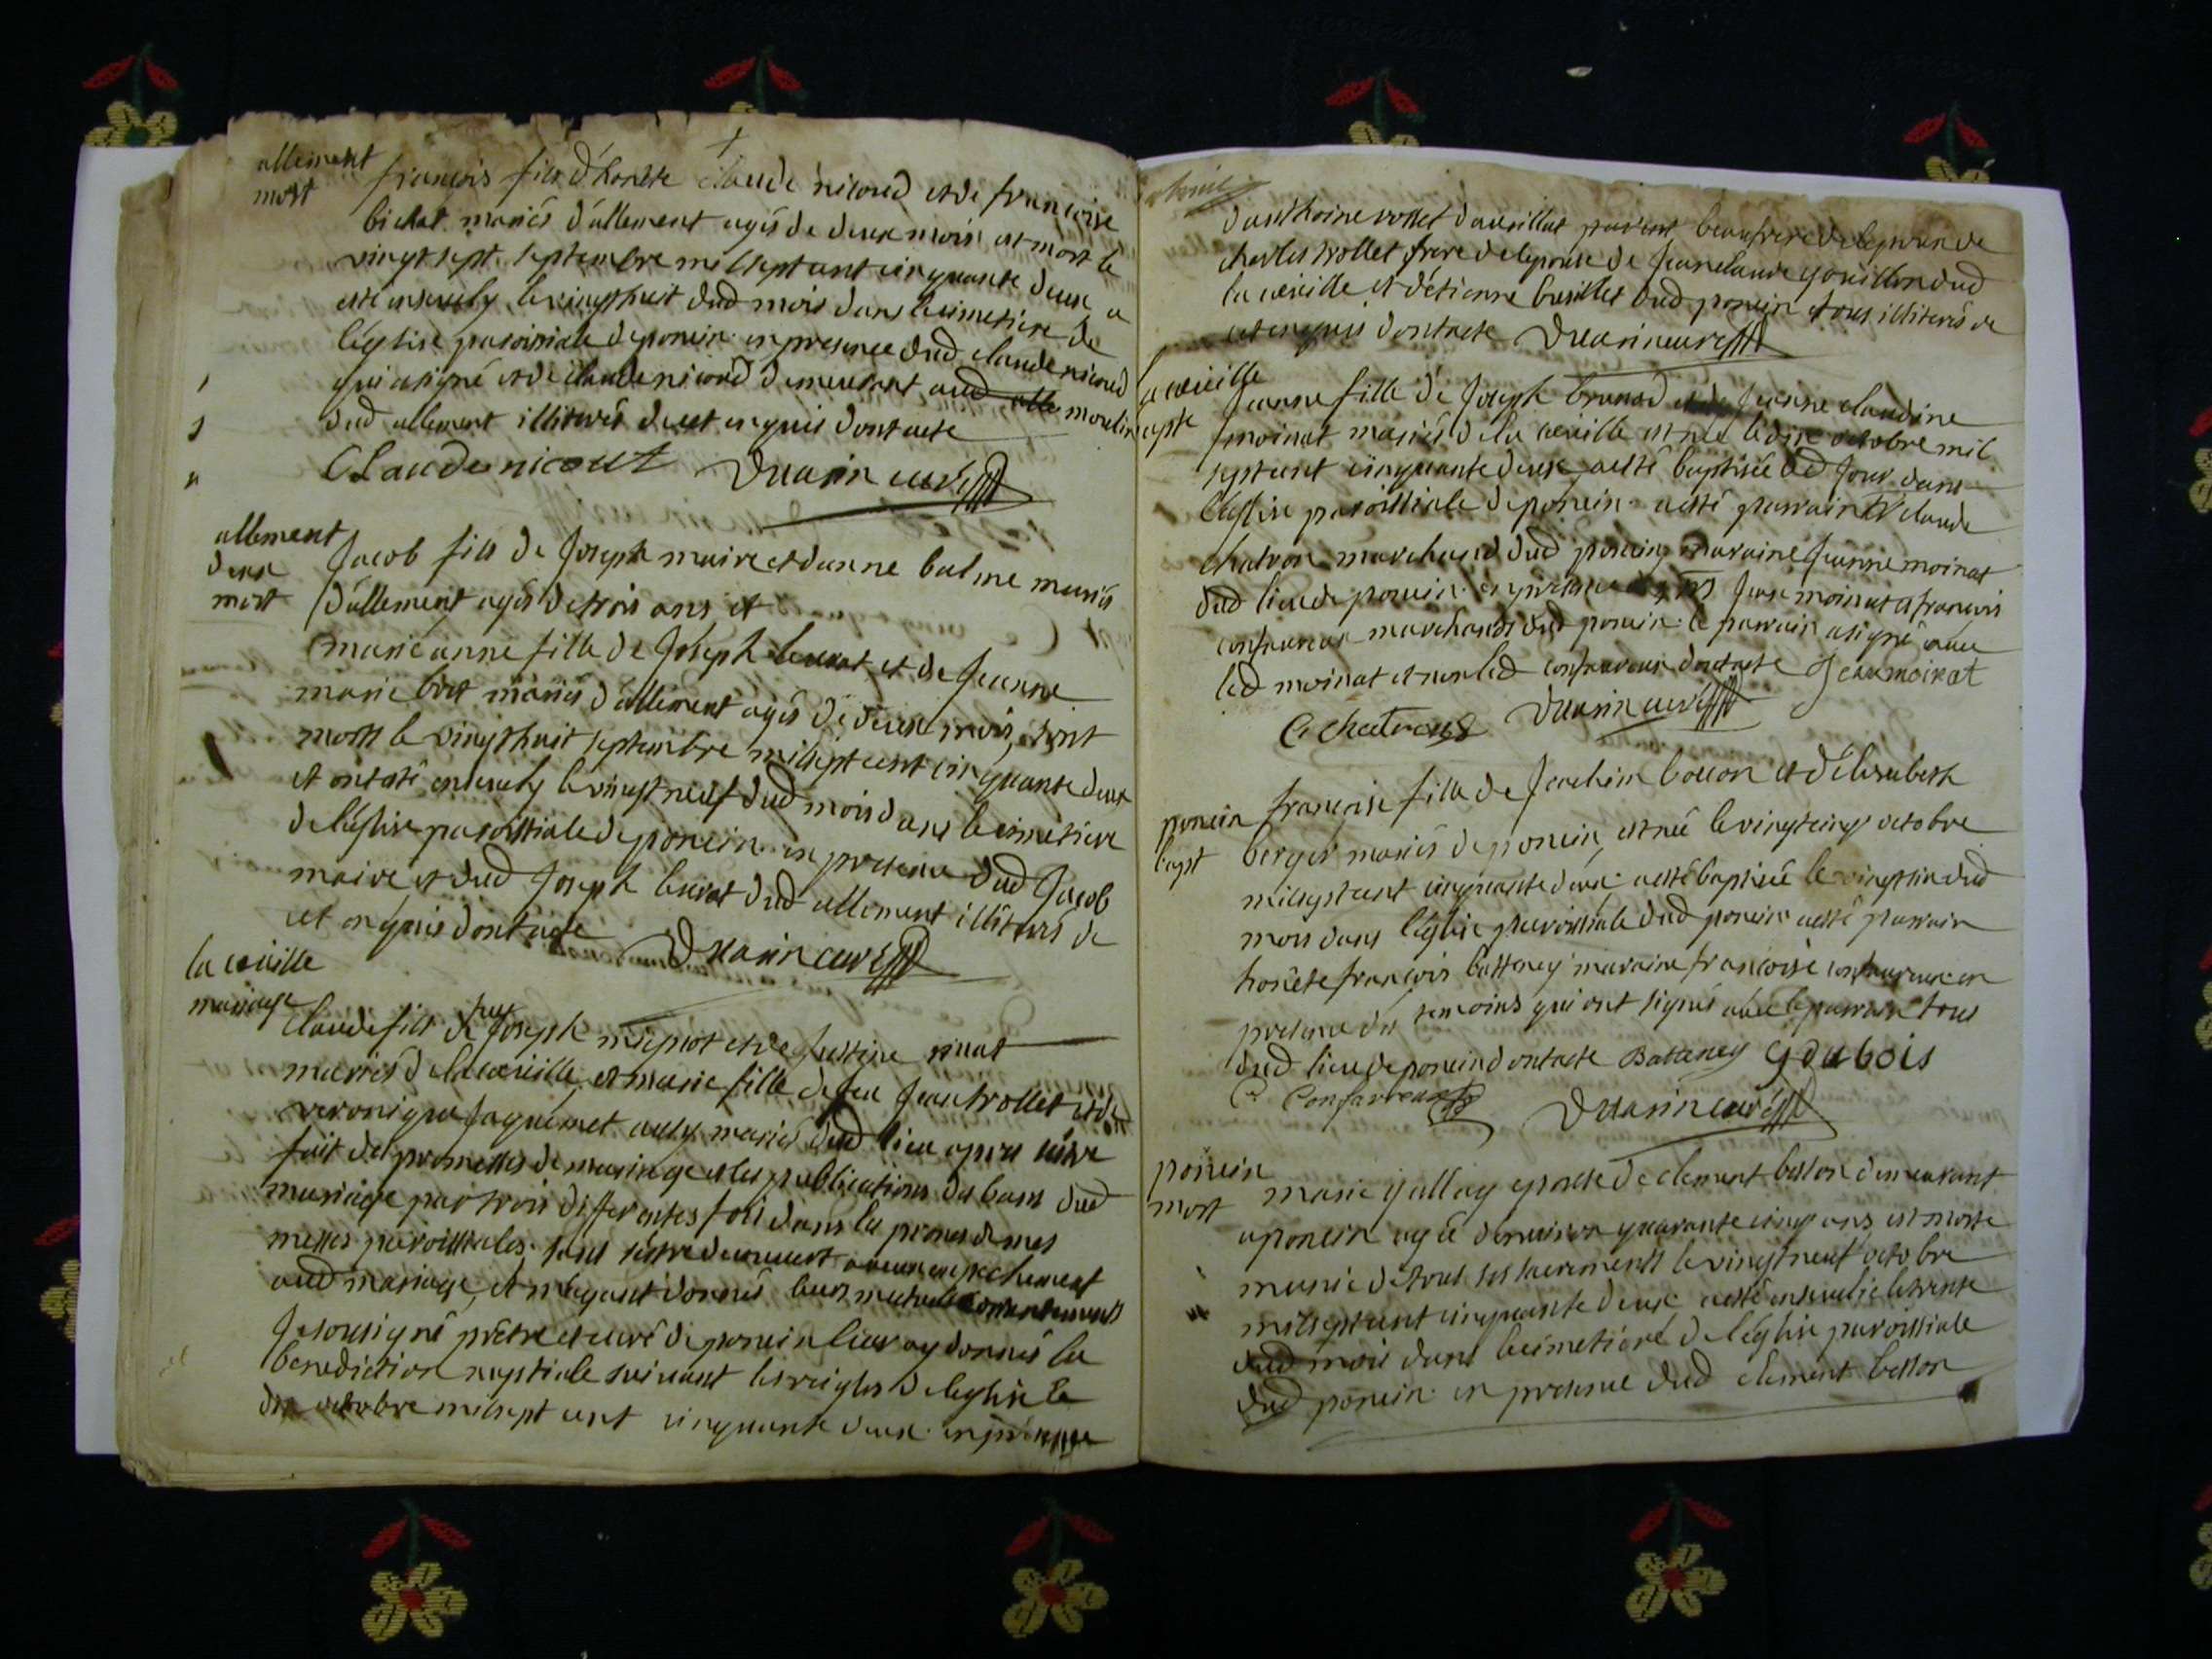 allement
mort
françois fils d'honete claude nicoud et de françoise
bichat mariés d'allement agés de deux mois est mort le
vingt sept septembre mil sept cent cinquante deux a
esté ensevely le vingt huit dud mois dans le cimetiere de
léglise paroissiale de poncin en presence dud claude nicoud
qui a signé et de claude nicoud demeurant aud moulin
dud allement illiterés de cet enquis dont acte
Claude nicout curé
allement
deux
mort
Jacob fils de Joseph maire et danne balme mariés
d'allement agés de trois ans et
marie anne fille de Joseph et de Jeanne
marie mariés d'allement agés de deux mois, sont
morts le vingt huit septembre mil sept cent cinquante deux
et ont esté ensevely le vingt neuf dud mois dans le cimetiere
de léglise paroissiale de poncin en presence dud Jacob
maire et dud Joseph dud allement illiterés de
cet enquis dont acte curé
la
mariage
claude fils de feu Joseph et de Justine
mariés de la et marie fille de feu Jean trollet et de
veronique Jaquemet auly mariés dud lieu apres
fait des promesses de mariage et les publications des bans dud
mariage par trois differentes fois dans les prones de mes
messes paroissiales sans s'estre decouvert aucun empechement
aud mariage, et m'ayant donnés leurs mutuels consentements
Je sousigné prêtre et curé de poncin leur ay donnés la
benediction nuptiale suivant les reigles de leglise le
dix octobre mil sept cent cinquante deux en presence
danthoine rosset parent beaufrere de lepouse de
charles trollet frere de lepouse de Jean claude gouillon dud
la et d'étienne dud poncin tous illiterés de
cet enquis dont acte curé
la
bapte
Jeanne fille de Joseph brunod et de Jeanne claudine
moinat mariés de la est née le dix octobre mil
sept cent cinquante deux a esté baptisée led Jour dans
l'église paroissiale de poncin a esté parrain claude
chatron marchand dud poncin maraine Jeanne moinat
dud lieu de poncin en presence Jean moinat et francois
confavreux marchands dud poncin le parrain a signé avec
led moinat et non led confavreux dont acte Jean moinat
C chatron curé
poncin
bapt
françoise fille de Joachim bouon et d'élisabeth
berger mariés de poncin est née le vingt cinq octobre
mil sept cent cinquante deux a esté baptisée le vingt six dud
mois dans l'église paroissiale dud poncin a esté parrain
honête françois batteney maraine françoise confavreux en
presence des temoins qui ont signés avec le parrain tous
dud lieu de poncin dont acte Batteney G dubois
C Confavreux curé
poncin
mort
marie gallay epouse de clement besson demeurant
a poncin agée d'environ quarante cinq ans est morte
munie de tous ses sacrements le vingt neuf octobre
mil sept cent cinquante deux a esté ensevelie le trente
dud mois dans le cimetiere de léglise paroissiale
dud poncin en presence dud clement besson